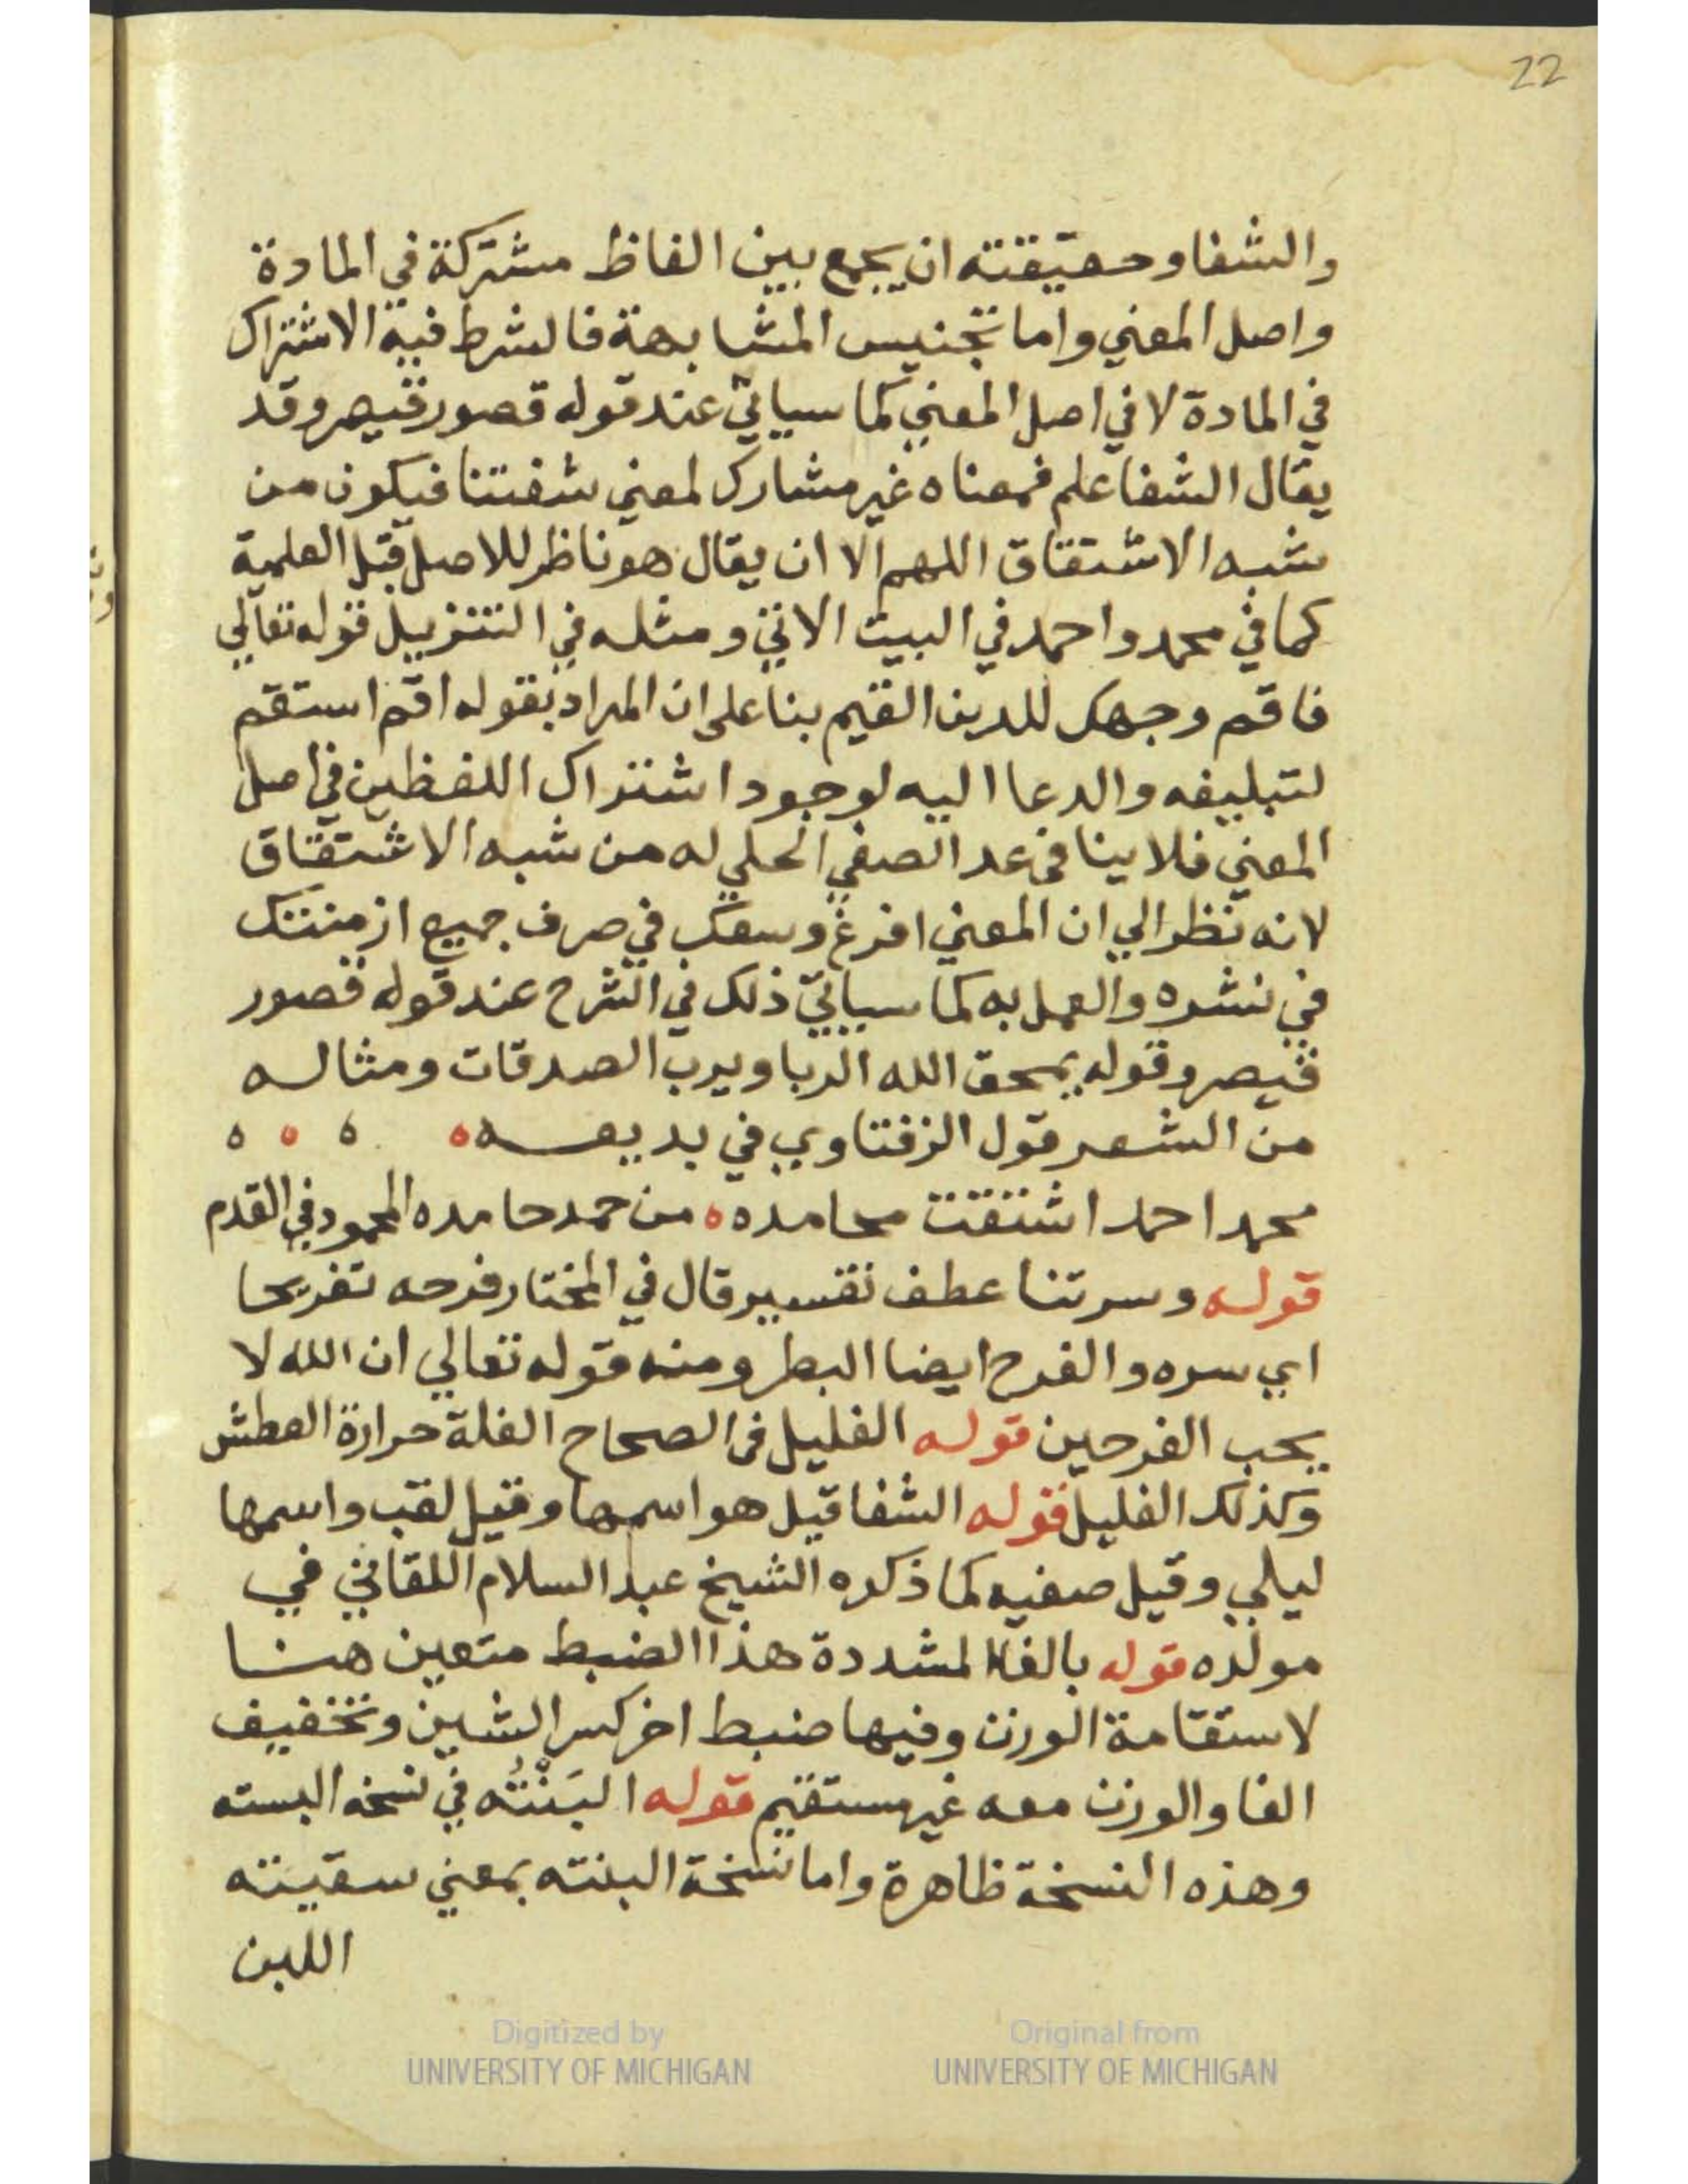 22
والشفا وحقيقته ان يجمع بين الفاظ مشتركة في المادة
واصل المعني واما تجنيس المشابهة فالشرط فيه الاشتراك
في المادة لا في اصل المعني كما سياتي عند قوله قصور قيصر وقد
يقال الشفا علم فمعناه غير مشارك لمعني شفتنا فيكون من
شبه الاشتقاق اللهم الا ان يقال هو ناظر للاصل قبل العلمية
كما في محمد واحمد في البيت الاتي ومثله في التنزيل قوله تعالي
فاقم وجهك للدين القيم بنا علي ان المراد بقوله اقم استقم
لتبليغه والدعا اليه لوجود اشتراك اللفظين في اصل
المعني فلا ينافي عد الصفي الحلي له من شبه الاشتقاق
لانه نظر الي ان المعني افرغ وسعك في صرف جميع ازمنتك
في نشره والعمل به كما سياتي ذلك في الشرح عند قوله قصور
قيصر وقوله يمحق الله الربا ويرب الصدقات ومثاله
من الشعر قول الزفتاوي في بديعه
محمد احمد اشتقت محامده ه من حمد حامده المحمود في القدم
قوله وسرتنا عطف تفسير قال في المختار فرحه تفريحا
اي سره والفرح ايضا البطر ومنه قوله تعالي ان الله لا
يحب الفرحين قوله الغليل في الصحاح الغلة حرارة العطش
وكذلك الغليل قوله الشفا قيل هو اسمها وقيل لقب واسمها
ليلي وقيل صفيه كما ذكره الشيخ عبد السلام اللقاني في
مولده قوله بالفا المشددة هذا الضبط متعين هنا
لاستقامة الوزن وفيها ضبط اخر كسر الشين وتخفيف
الفا والوزن معه غير مستقيم قوله البَنْتُه في نسخه البسته
وهذه النسخة ظاهرة واما نسخة البنته بمعني سقيته
اللبن
Digitized by
UNIVERSITY OF MICHIGAN
Original from
UNIVERSITY OF MICHIGAN